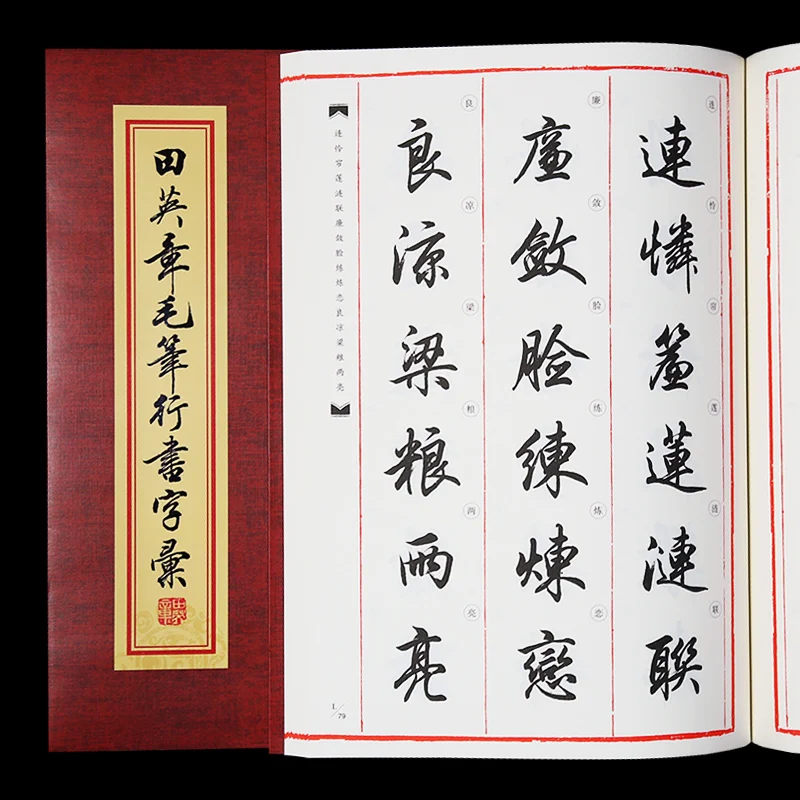 田英章毛筆行書字彙
连
怜
帘
莲
涟
联
連憐簾蓮漣聯
廉
敛
脸
练
炼
恋
廉斂臉練煉戀
良
凉
梁
粮
两
亮
良涼梁粮兩亮
连怜帘莲涟联廉敛脸练炼恋良凉梁粮两亮
L/79